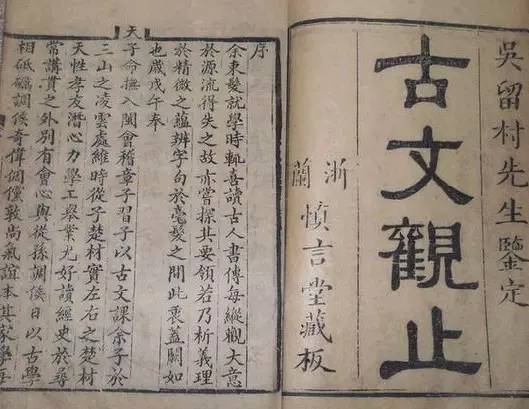 吳留村先生鑒定
古文觀止
浙蘭
慎言堂藏板
序
余束髮就學時輒喜讀古人書傳每縱觀大意
於源流得失之故亦嘗探其要領若乃析義理
於精微之蘊辨字句於毫髮之間此衷蓋闕如
也歲戊午奉
天子命撫八閩會稽章子習子以古文課余子於
三山之凌雲處維時從子楚材實左右之楚材
天性孝友潛心力學工舉業尤好讀經史於尋
常講貫之外別有會心與從孫調侯日以古學
相砥礪調侯奇偉倜儻敦尚氣誼本其家學每